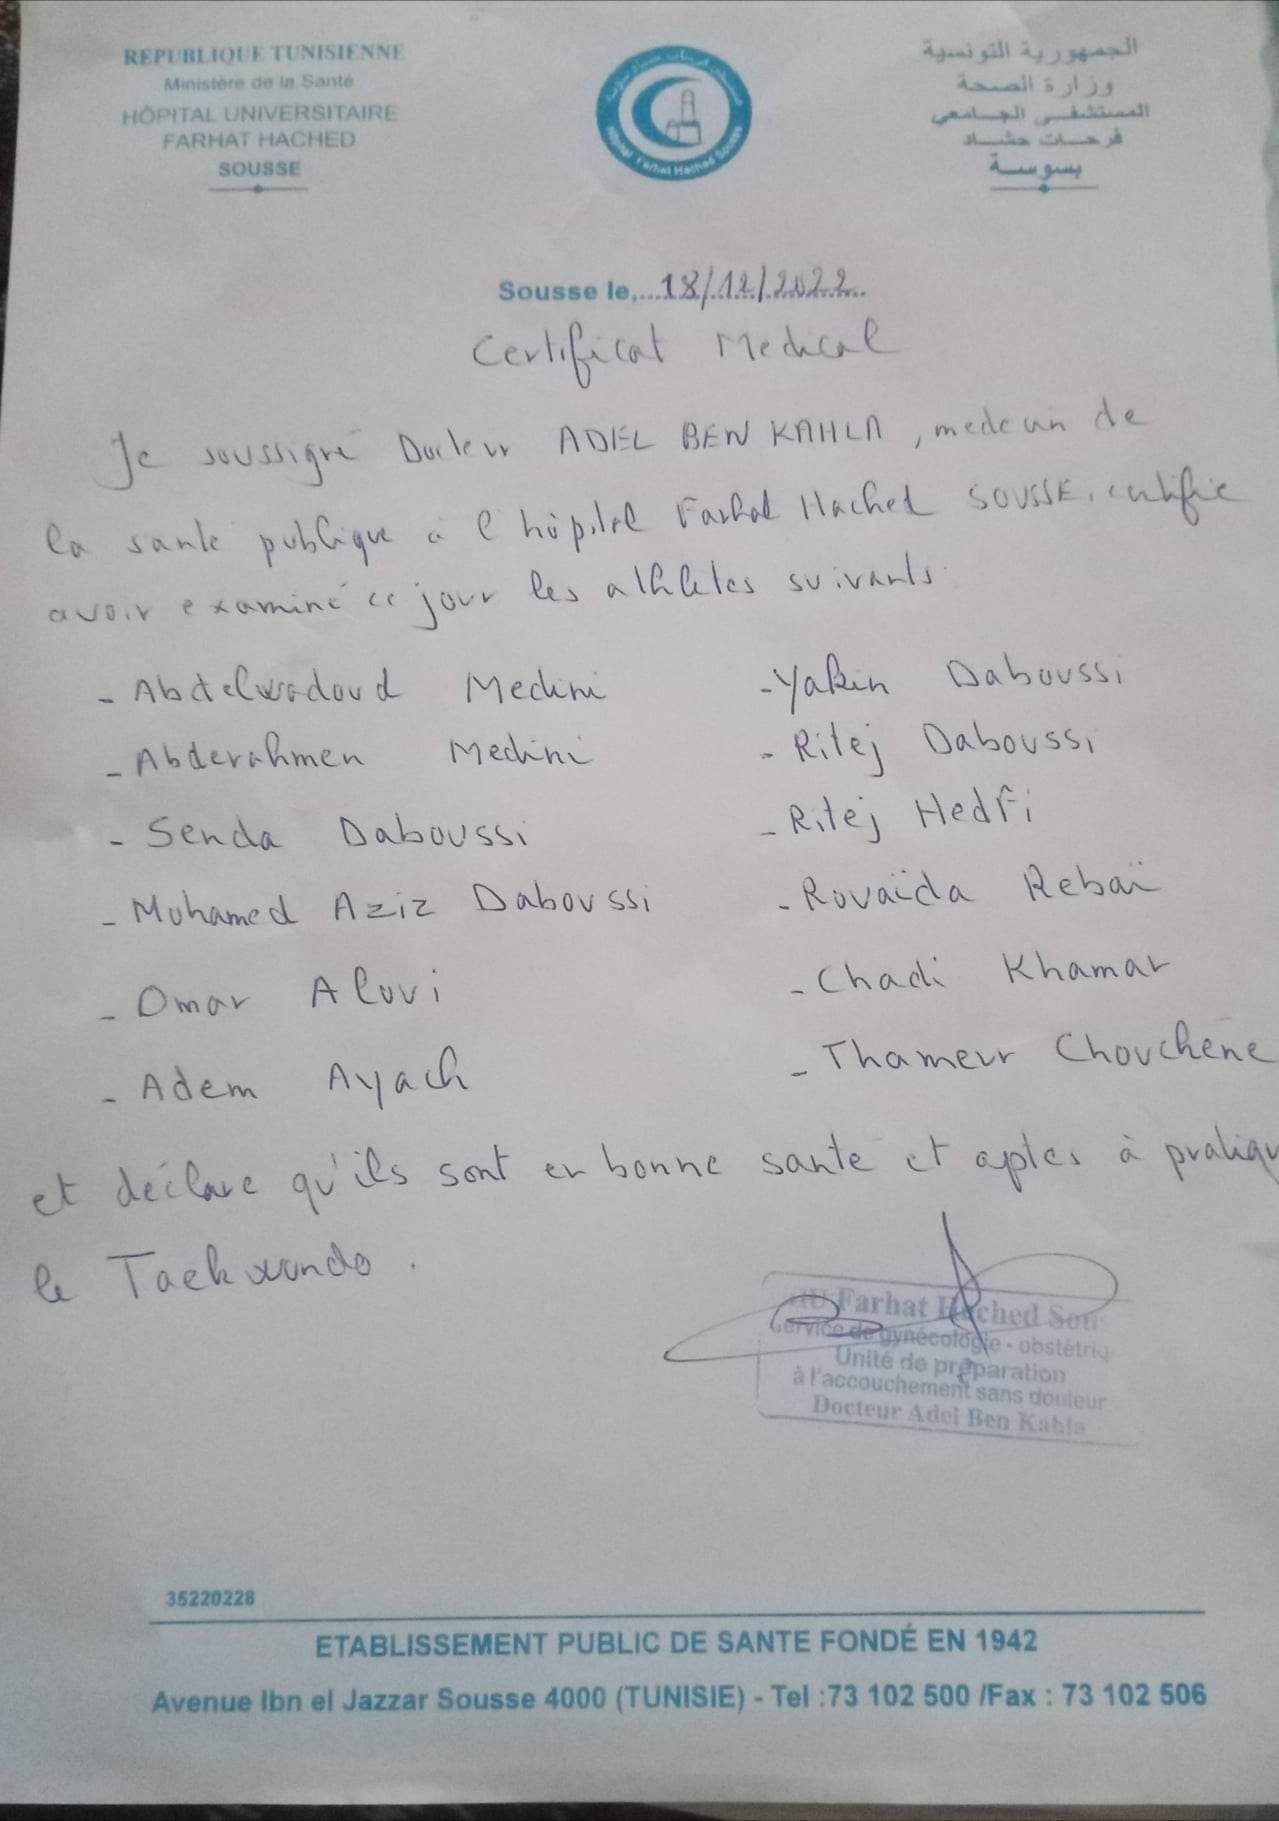 REPUBLIQUE TUNISIENNE
Ministère de la Santé
HÔPITAL UNIVERSITAIRE
FARHAT HACHED
SOUSSE
الجمهورية التونسية
وزارة الصحة
المستشفى الجامعي
فرحات حشاد
بسوسة
Hôpital Farhat Hached Sousse
Sousse le,...18/12/2022
Certificat Medical
Je soussigné Docteur ADEL BEN KAHLA, medecin de
la santé publique à l'hôpital Farhat Hached SOUSSE, certifie
avoir examiné ce jour les athlètes suivants:
- Abdelwadoud Medini
- Abderahmen Medini
- Senda Daboussi
- Mohamed Aziz Daboussi
- Omar Aloui
- Adem Ayach
- Yakin Daboussi
- Ritej Daboussi
- Ritej Hedfi
- Rouaïda Rebaï
- Chadi Khamar
- Thameur Chouchene
et déclare qu'ils sont en bonne santé et aptes à pratiqu
le Taekwondo.
HU Farhat Hached Sou
Service de gynécologie - obstétriq
Unité de préparation
à l'accouchement sans douleur
Docteur Adel Ben Kahla
35220228
ETABLISSEMENT PUBLIC DE SANTE FONDÉ EN 1942
Avenue Ibn el Jazzar Sousse 4000 (TUNISIE) - Tel :73 102 500 /Fax : 73 102 506